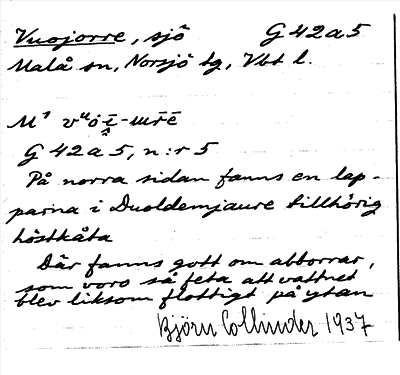 Vuojorre, sjö G 42 a 5
Malå sn, Norsjö tg, Vbt l.
G 42 a 5, n:r 5
På norra sidan fanns en lap-
parna i Duoldemjaure tillhörig
höstkåta
Där fanns gott om abborrar,
som voro så feta att vattnet
blev liksom flottigt på ytan
Björn Collinder 1937